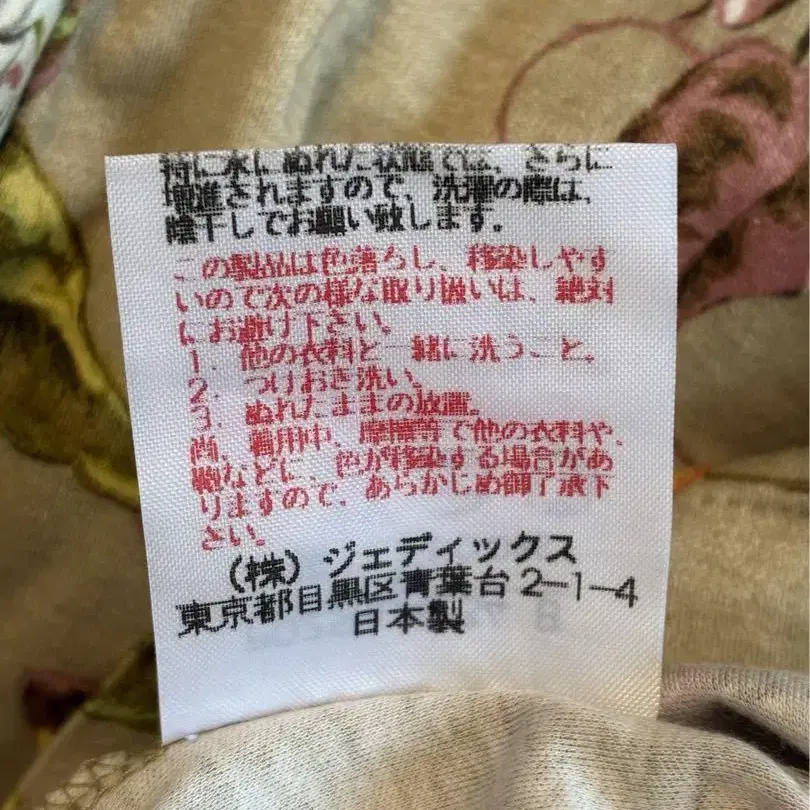 特に水にぬれた状態では、さらに
増進されますので、洗濯の際は、
陰干しでお願い致します。
この製品は色落ちし、移染しやす
いので次の様な取り扱いは、絶対
にお避け下さい。
1. 他の衣料と一緒に洗うこと。
2. つけおき洗い。
3. ぬれたままの放置。
尚、着用中、摩擦等で他の衣料や、
鞄などに、色が移染する場合があ
りますので、あらかじめ御了承下
さい。
(株) ジェディックス
東京都目黒区青葉台2-1-4
日本製